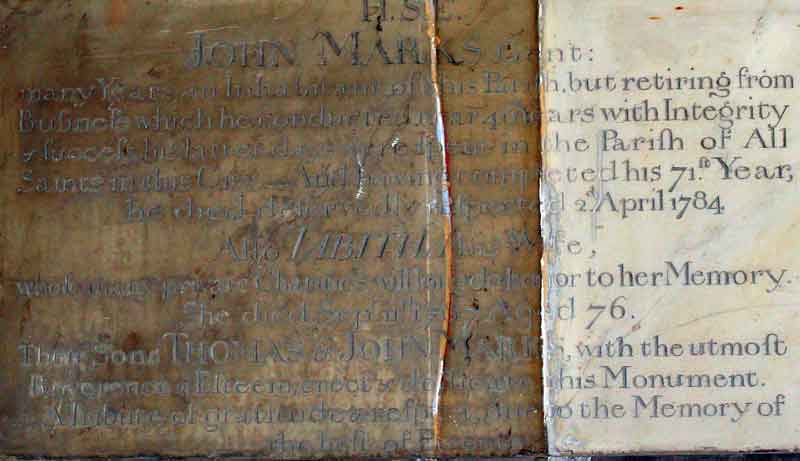 H.S.E.
JOHN MARKS Gent:
many Years an Inhabitant of this Pariſh, but retiring from
Buſineſs which he conducted near 40 Years with Integrity
& ſucceſs, his latter days were ſpent in the Pariſh of All
Saints in this City. And having completed his 71.ſt Year,
he died deservedly reſpected 2.d April 1784
Alſo TABITHA his Wife,
whoſe many private Charities will long do honor to her Memory.
She died Sept. Aged 76.
Their Sons THOMAS & JOHN MARKS, with the utmoſt
Reverence & Eſteem, erect & dedicate this Monument.
A Tribute of gratitude & reſpect, due to the Memory of
the beſt of Parents